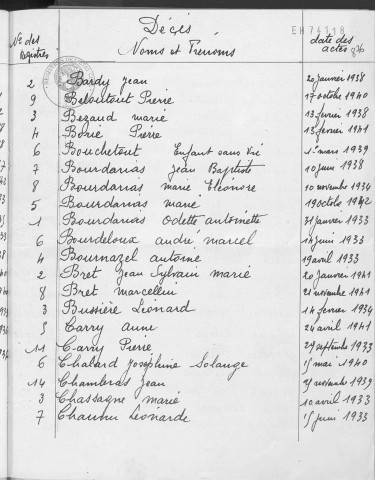 Décès
EH 74318
Nos des Registres Noms et Prénoms date des actes
2 Bardy Jean 20 janvier 1938
9 Beloutout Pierre 17 octobre 1940
3 Bezaud marie 13 fevrier 1938
4 Borie Pierre 13 fevrier 1941
6 Bouchetout Enfant sans vie 1er mars 1939
7 Bourdarias Jean Baptiste 10 juin 1938
8 Bourdarias marie Eléonore 10 novembre 1934
5 Bourdarias marie 19 octo 1942
1 Bourdarias Odette antoinette 31 janvier 1933
6 Bourdeloux andré marcel 14 juin 1933
4 Bournazel antoine 19 avril 1933
2 Bret Jean Sylvain marie 20 janvier 1941
8 Bret marcellin 21 novembre 1941
3 Bussière Léonard 14 fevrier 1934
5 Carry anne 24 avril 1941
11 Carry Pierre 27 septembre 1933
6 Chalard Joséphine Solange 15 mai 1940
14 Chambras Jean 25 novembre 1939
3 Chassagne marie 10 avril 1933
7 Chaunu Léonarde 15 juin 1933